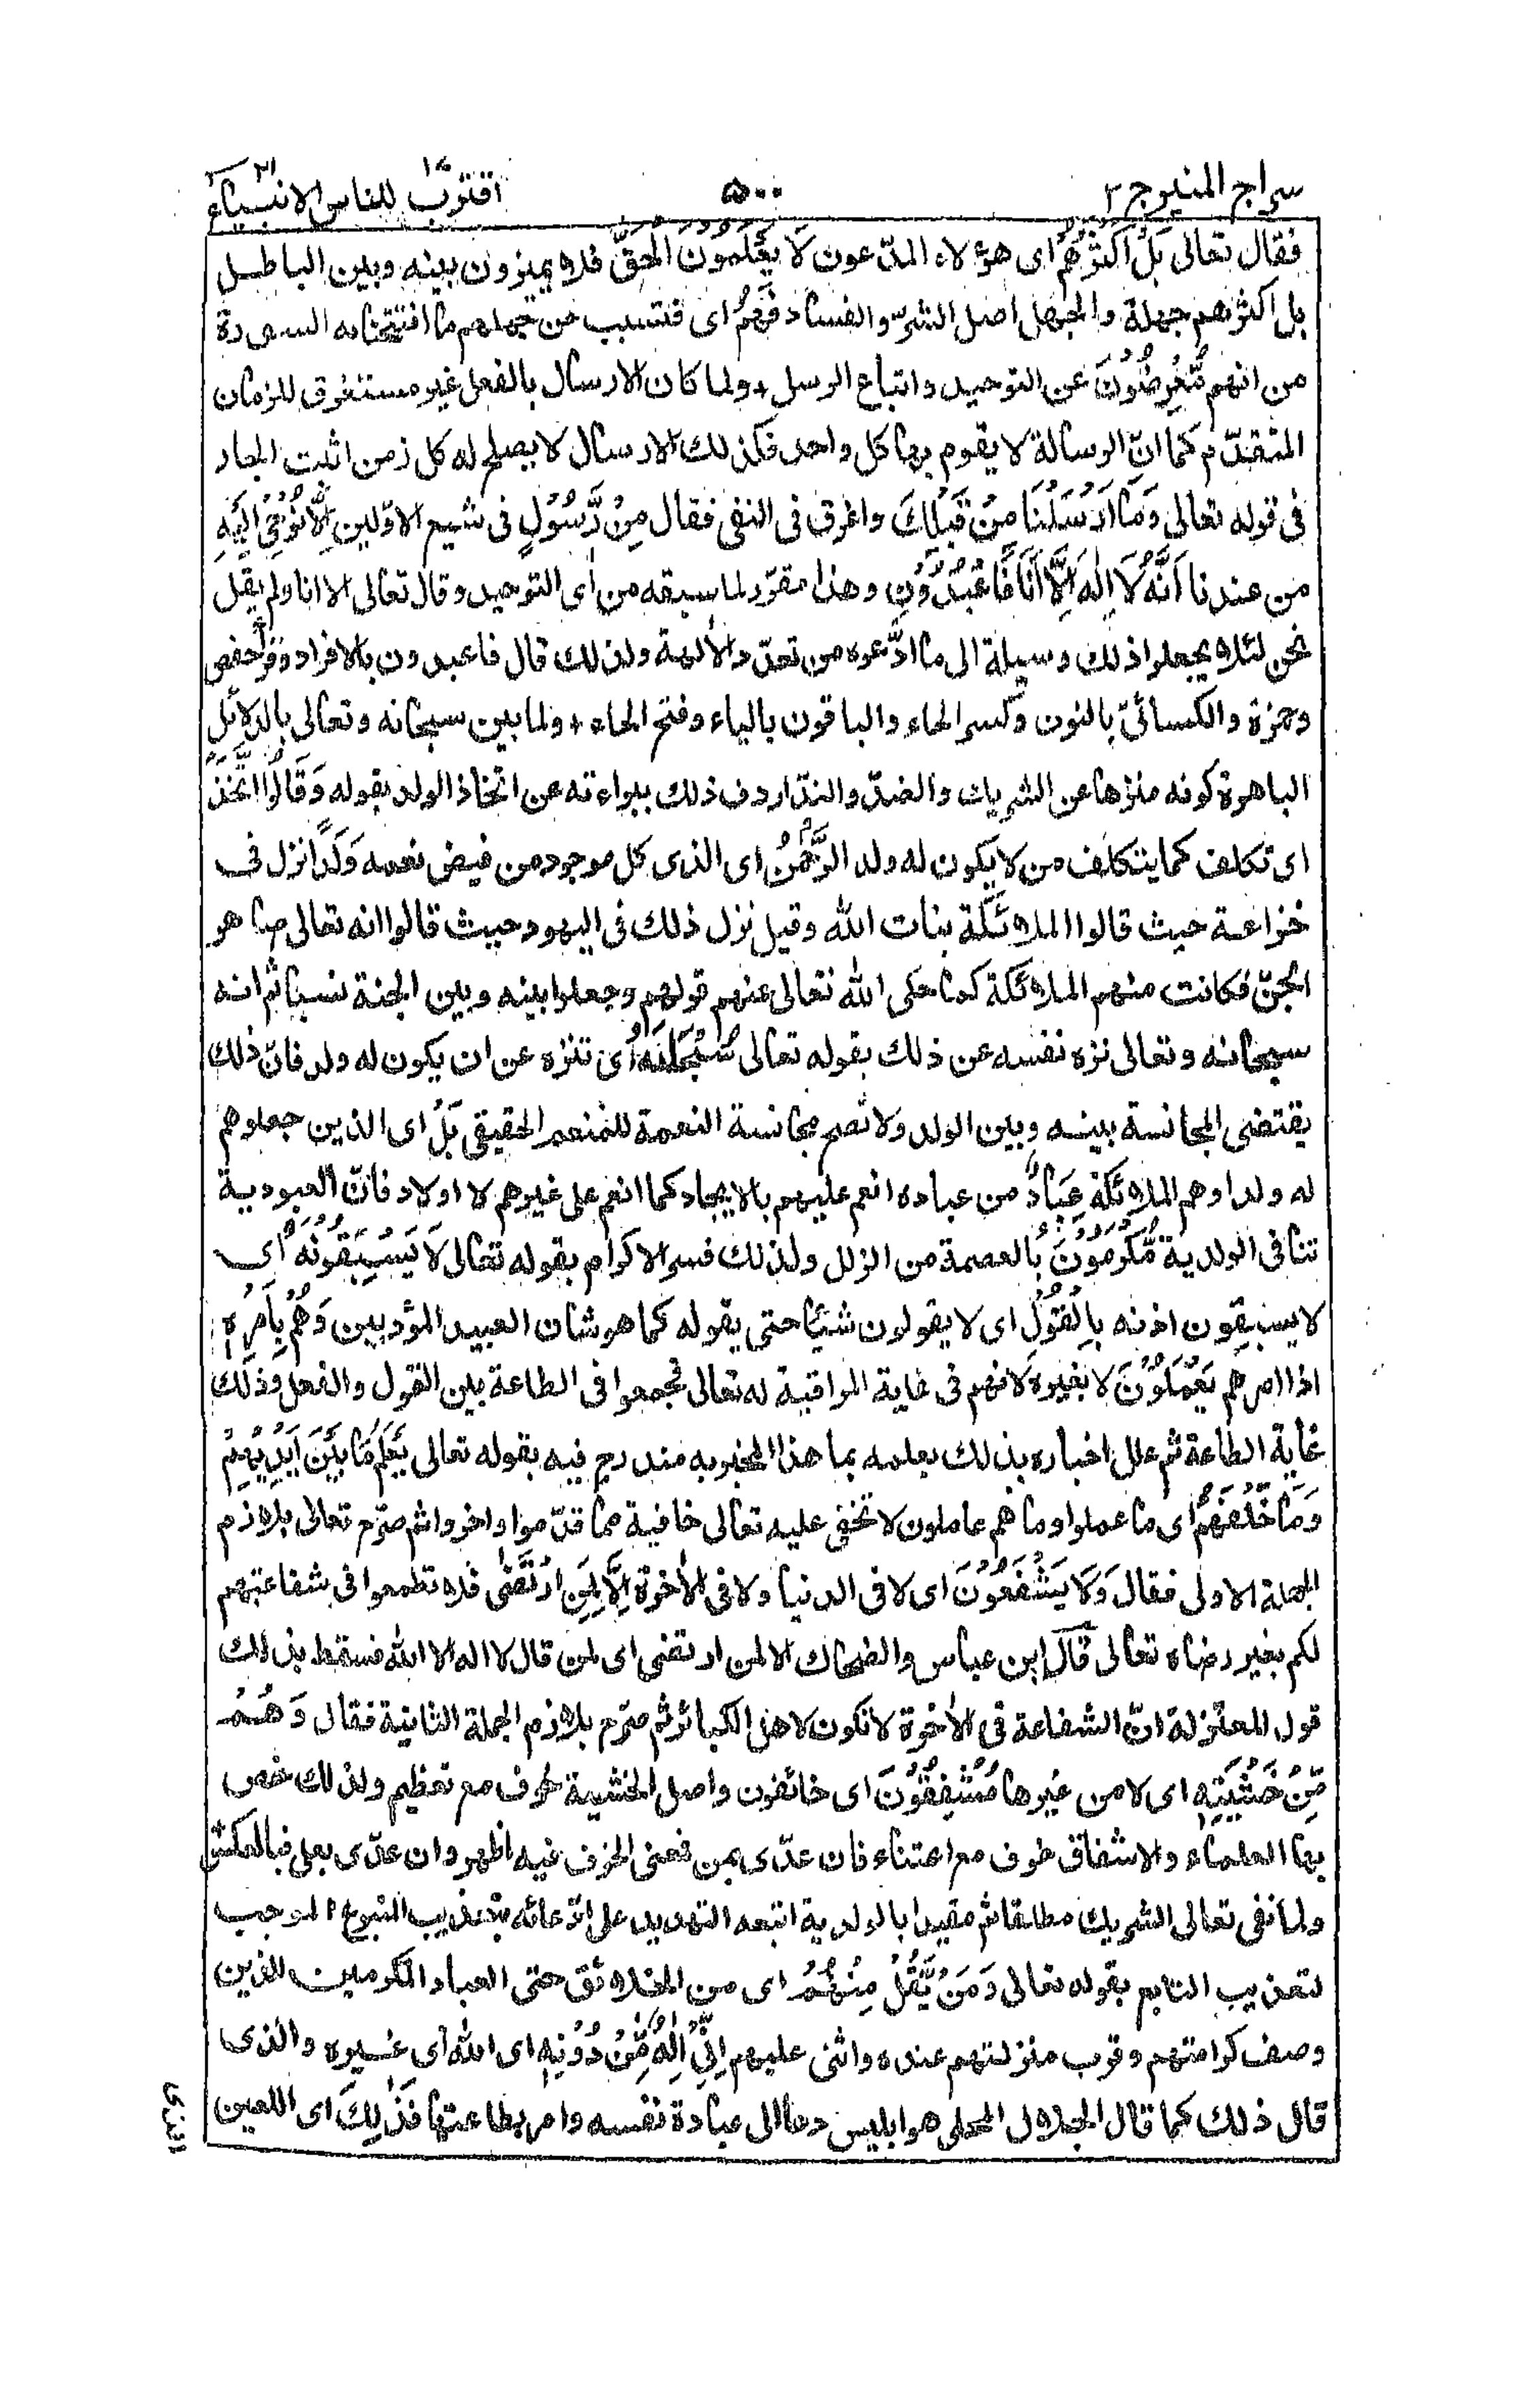 سراج المنير ج ٢ ٥٠٠ اقترب للناس ١٧ الانبياء ٢١
فقال تعالى بَلْ اَكْثَرُهُمْ اى هؤلاء المدّعون لَا يَعْلَمُوْنَ الْحَقَّ فلا يميزون بينه وبين الباطل
بل اكثرهم جهلة والجهل اصل الشرّ والفساد فَهُمْ اى فتسبب عن جهلهم ما افتتحنا به السورة
من انهم مُّعْرِضُوْنَ عن التوحيد واتباع الرسل + ولما كان الارسال بالفعل غير مستغرق للزمان
المتقدّم كما انّ الرسالة لا يقوم بها كل واحد فكذلك الارسال لا يصلح له كل زمن اثبت الجار
فى قوله تعالى وَمَا اَرْسَلْنَا مِنْ قَبْلِكَ واغرق فى النفى فقال مِنْ رَّسُوْلٍ فى شيع الاوّلين اِلَّا نُوْحِىْ اِلَيْهِ
من عندنا اَنَّهٗ لَا اِلٰهَ اِلَّا اَنَا فَاعْبُدُوْنِ وهذا مقرّر لما سبقه من اى التوحيد وقال تعالى الا انا ولم يقل
نحن لئلا يجعلوا ذلك وسيلة الى ما ادّعوه من تعدّد الألهة ولذلك قال فاعبدون بالافراد وقرأ حفص
وحمزة والكسائىّ بالنون وكسر الحاء والباقون بالياء وفتح الحاء + ولما بين سبحانه وتعالى بالدلائل
الباهرة كونه منزها عن الشريك والضدّ والندّ اردف ذلك ببراءته عن اتخاذ الولد بقوله وَقَالُوا اتَّخَذَ
اى تكلف كما يتكلف من لا يكون له ولد الرَّحْمٰنُ اى الذى كل موجود من فيض نعمه وَلَدًا نزل فى
خزاعة حيث قالوا الملائكة بنات الله وقيل نزل ذلك فى اليهود حيث قالوا انه تعالى صاهر
الجنّ فكانت منهم الملائكة كما حكى الله تعالى عنهم قولهم وجعلوا بينه وبين الجنة نسبا ثم انه
سبحانه وتعالى نزه نفسه عن ذلك بقوله تعالى سُبْحَانَهٗ اى تنزه عن ان يكون له ولد فانّ ذلك
يقتضى المجانسة بينه وبين الولد ولا تصح مجانسة النعمة للمنعم الحقيقى بَلْ اى الذين جعلوهم
له ولدا وهم الملائكة عِبَادٌ من عباده انعم عليهم بالايجاد كما انعم على غيرهم لا اولاد فانّ العبودية
تنافى الولدية مُّكْرَمُوْنَ بالعصمة من الزلل ولذلك فسر الاكرام بقوله تعالى لَا يَسْبِقُوْنَهٗ اى
لا يسبقون اذنه بِالْقَوْلِ اى لا يقولون شيئا حتى يقوله كما هو شان العبيد المؤدبين وَهُمْ بِاَمْرِهٖ
اذا امرهم يَعْمَلُوْنَ لا بغيره لانهم فى غاية المراقبة له تعالى فجمعوا فى الطاعة بين القول والفعل وذلك
غاية الطاعة ثم علل اخباره بذلك بعلمه بما هذا المخبر به مندرج فيه بقوله تعالى يَعْلَمُ مَا بَيْنَ اَيْدِيْهِمْ
وَمَا خَلْفَهُمْ اى ما عملوا وما هم عاملون لا تخفى عليه تعالى خافية مما قدّموا واخروا ثم صرّح تعالى بلازم
الجملة الاولى فقال وَلَا يَشْفَعُوْنَ اى لا فى الدنيا ولا فى الأخرة اِلَّا لِمَنِ ارْتَضٰى فلا تطمعوا فى شفاعتهم
لكم بغير رضاه تعالى قال ابن عباس والضحاك الا لمن ارتضى اى لمن قال لا اله الا الله فسقط بذلك
قول المعتزلة انّ الشفاعة فى الأخرة لا تكون لاهل الكبائر ثم صرّح بلازم الجملة الثانية فقال وَهُمْ
مِّنْ خَشْيَتِهٖ اى لا من غيرها مُشْفِقُوْنَ اى خائفون واصل الخشية خوف مع تعظيم ولذلك خص
بها العلماء والاشفاق خوف مع اعتناء فان عدّى بمن فمعنى الخوف فيه اظهر وان عدّى بعلى فبالعكس
ولما نفى تعالى الشريك مطلقا ثم مقيدا بالولدية اتبعه التهديد على ادّعائه بتعذيب المتبوع الموجب
لتعذيب التابع بقوله تعالى وَمَنْ يَّقُلْ مِنْهُمْ اى من الخلائق حتى العباد المكرمين الذين
وصف كرامتهم وقرب منزلتهم عنده واثنى عليهم اِنِّىْ اِلٰهٌ مِّنْ دُوْنِهٖ اى الله اى غيره والذى
قال ذلك كما قال الجلال المحلى هو ابليس دعا الى عبادة نفسه وامر بطاعتها فَذٰلِكَ اى اللعين
الذى